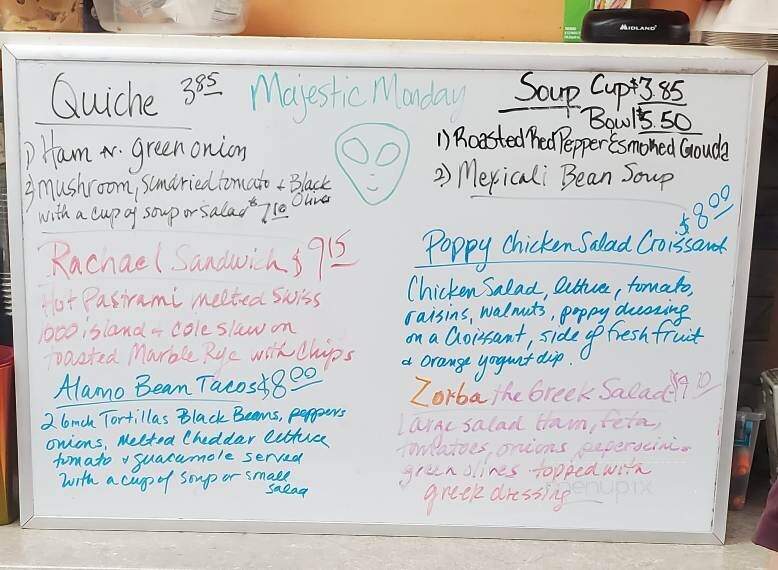 MIDLAND
Quiche 3.85
Majestic Monday
1) Ham & green onion
2) Mushroom, Sundried tomato & Black Olive
with a cup of soup or salad $7.10
Soup Cup $3.85
Bowl $5.50
1) Roasted Red Pepper & smoked Gouda
2) Mexicali Bean Soup
Rachael Sandwich $9.15
Hot Pastrami melted Swiss
1000 island & cole slaw on
toasted Marble Rye with Chips
Alamo Bean Tacos $8.00
2 6inch Tortillas Black Beans, peppers
onions, melted Cheddar lettuce
tomato & guacamole served
with a cup of soup or small
salad
$8.00
Poppy Chicken Salad Croissant
Chicken Salad, lettuce, tomato,
raisins, walnuts, poppy dressing
on a Croissant, side of fresh fruit
& orange yogurt dip.
Zorba the Greek Salad $9.10
Large salad Ham, feta,
tomatoes, onions, peperocini &
green olives topped with
greek dressing
menupix